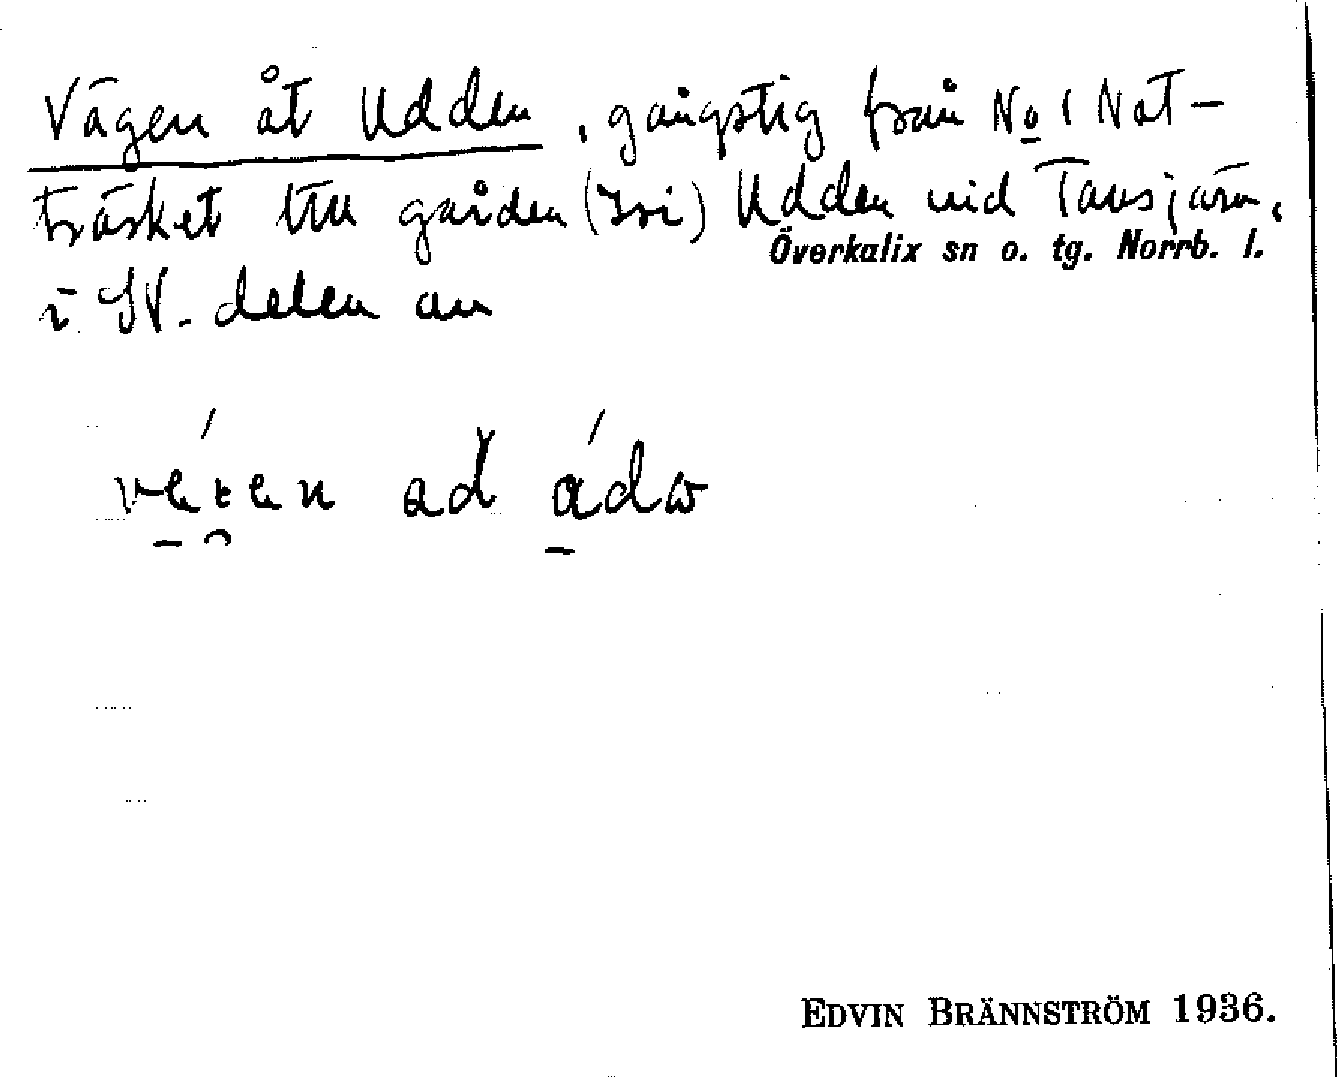 Vägen åt Udden, gångstig från No 1 Nat-
träsket till gården (Isi) Udden vid Tansjärn,
Överkalix sn o. tg. Norrb. l.
i SV. delen av
EDVIN BRÄNNSTRÖM 1936.